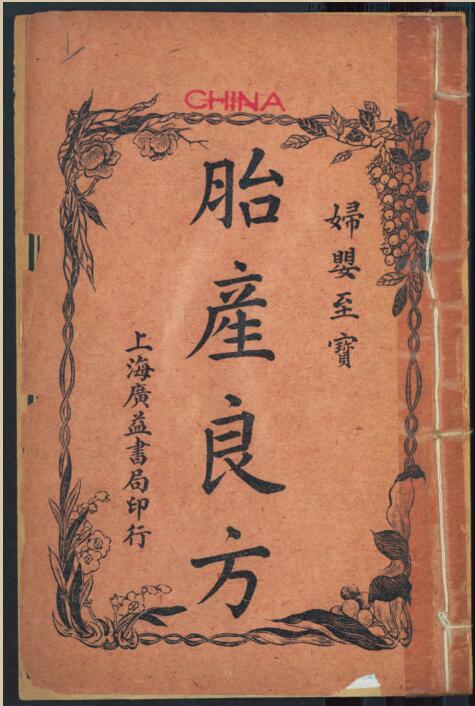 CHINA
婦嬰至寶
胎產良方
上海廣益書局印行